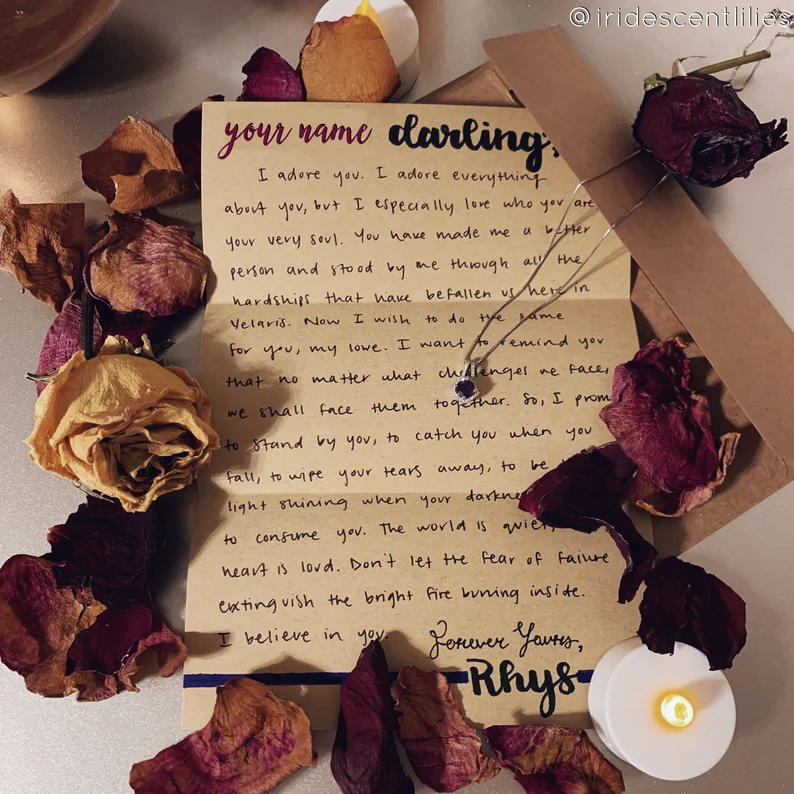 @iridescentlilies
your name darling,
I adore you. I adore everything
about you, but I especially love who you are
your very soul. You have made me a better
person and stood by me through all the
hardships that have befallen us here in
Velaris. Now I wish to do the same
for you, my love. I want to remind you
that no matter what challenges we face,
we shall face them together. So, I
to stand by you, to catch you when you
fall, to wipe your tears away, to be
light shining when your
to consume you. The world is quiet,
heart is loud. Don't let the fear of failure
extinguish the bright fire burning inside.
I believe in you.
Forever Yours,
Rhys